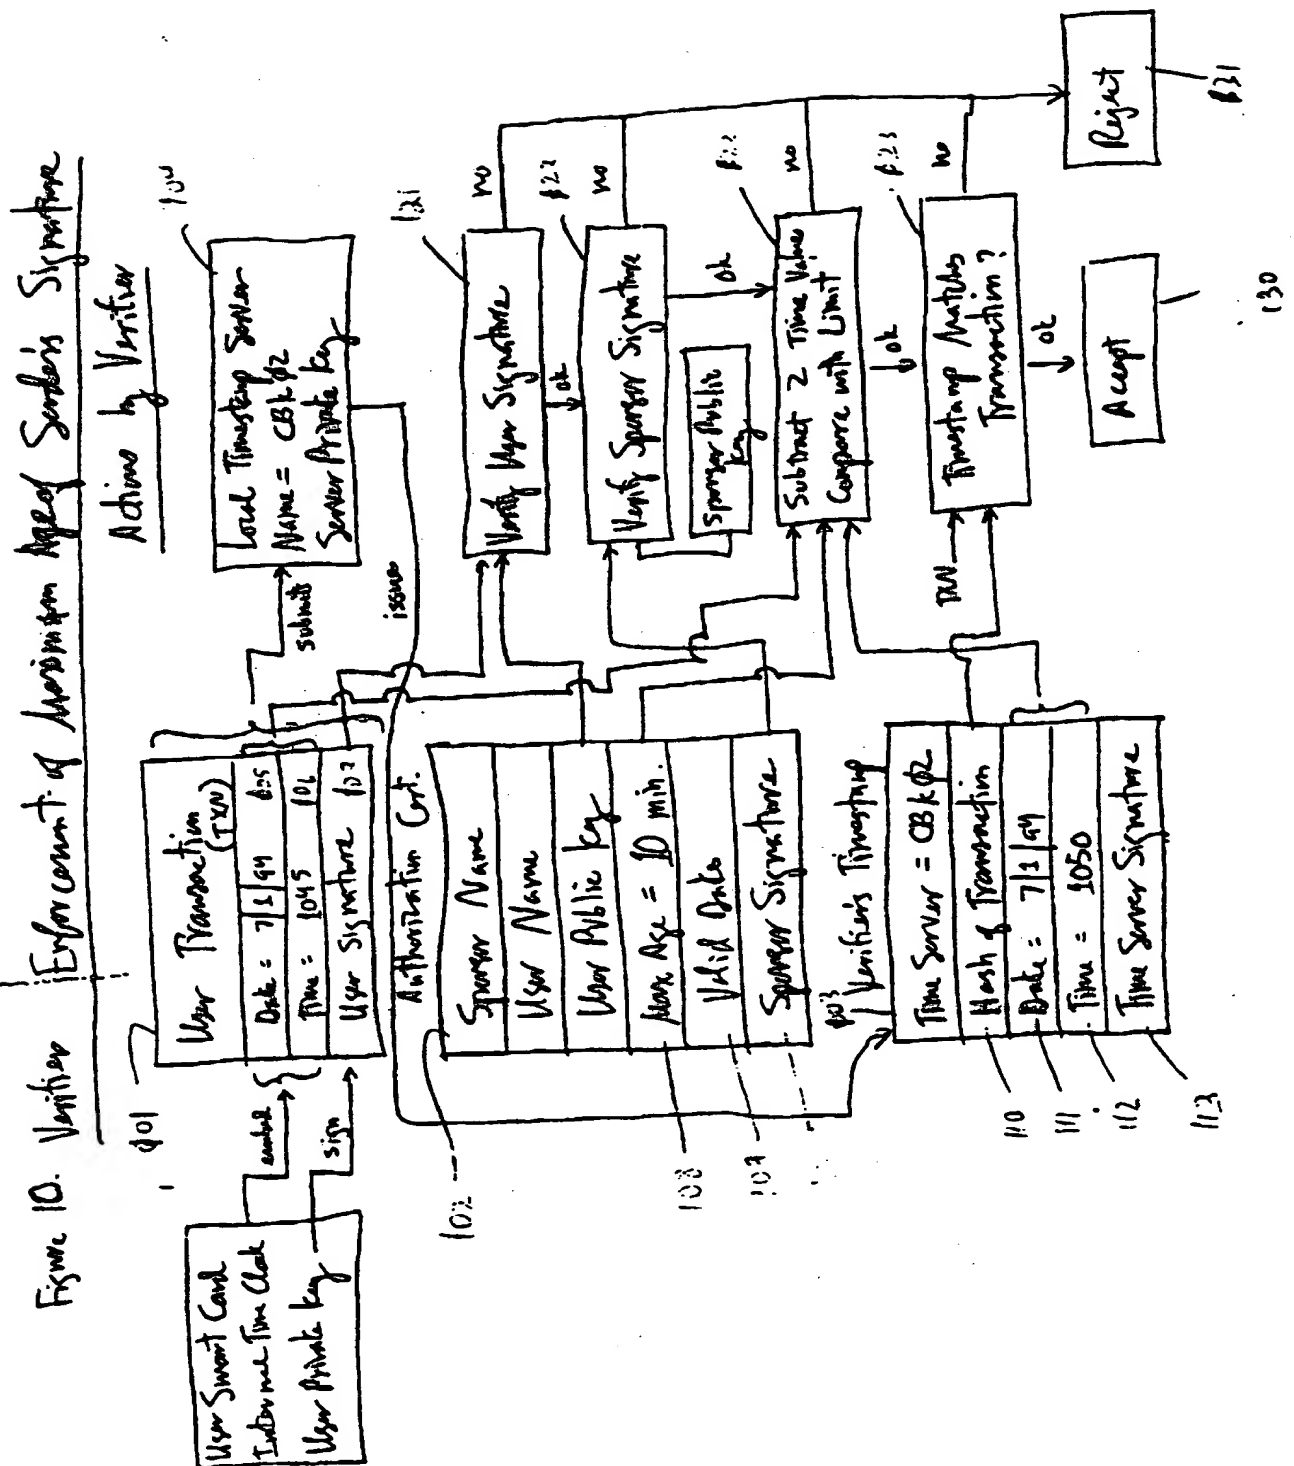 Figure 10. Verifier Enforcement of Maximum Age of Sender's Signature
Actions by Verifier
User Smart Card
Internal Time Clock
User Private Key
embed
sign
101
User Transaction
(TXN)
Date = 7/1/94
Time = 1045
User Signature
submit
Local Timestamp Server
Name = CBKØ2
Server Private Key
issue
Authorization Cert.
102
Sponsor Name
User Name
User Public Key
Max Age = 10 min.
Valid Date
Sponsor Signature
108
107
Verifier's Timestamp
Time Server = CBKØ2
Hash of Transaction
Date = 7/1/94
Time = 1050
Time Server Signature
110
111
112
113
121
Verify User Signature
no
ok
Verify Sponsor Signature
no
ok
Sponsor Public
Key
Subtract 2 Time Values
Compare with Limit
no
ok
TXN
Timestamp Matches
Transaction?
no
ok
Accept
130
Reject